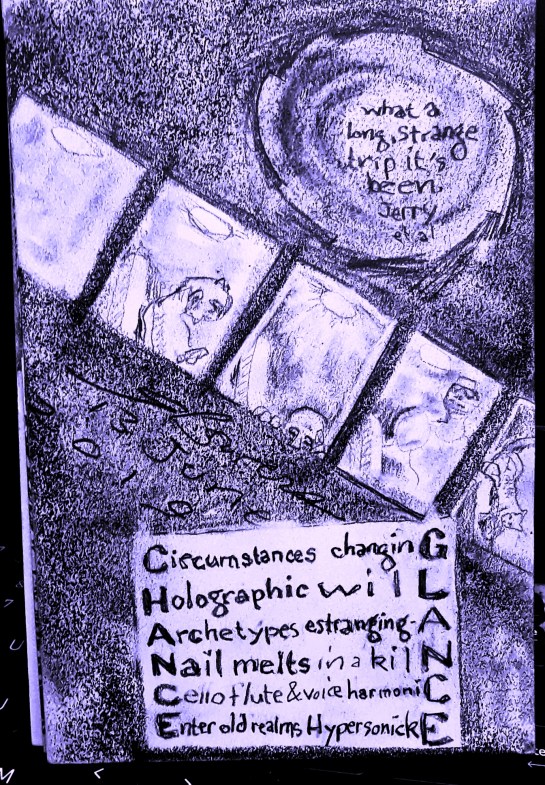 what a
long, strange
trip it's
been.
Jerry
et al
13 June
2019
Circumstances changinG
Holographic wilL
Archetypes estranging-A
Nail melts in a kilN
Cello flute & voice harmoniC
Enter old realms HypersonickE